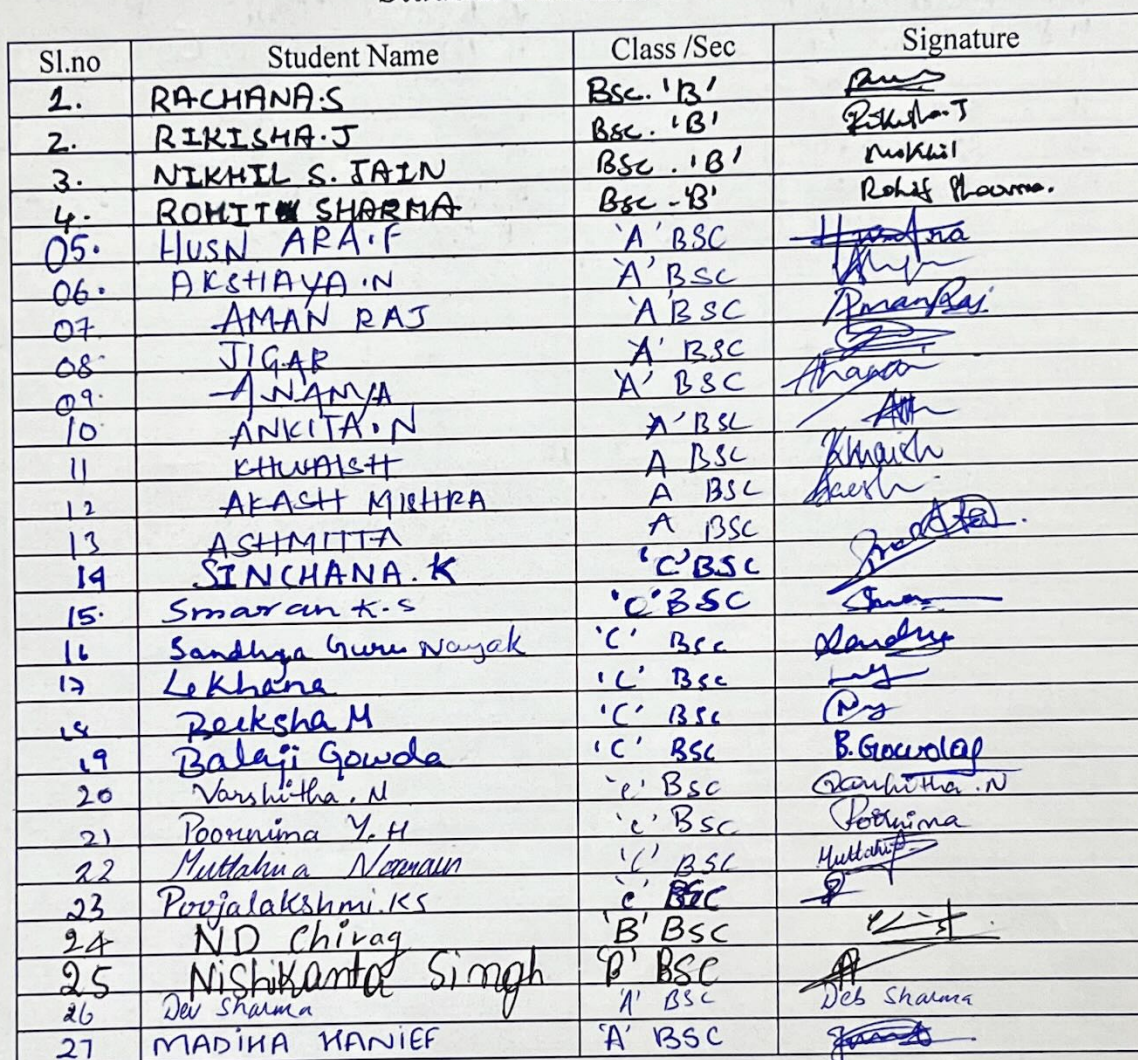 Sl.no Student Name Class /Sec Signature
1. RACHANA.S Bsc. 'B'
2. RIKISHA.J Bsc. 'B' Rikisha.J
3. NIKHIL S. JAIN BSC. 'B' Nikhil
4. ROHIT SHARMA Bsc - 'B' Rohit Sharma.
05. HUSN ARA.F 'A' BSC
06. AKSHAYA.N 'A' BSC
07 AMAN RAJ 'A' BSC Aman Raj
08 JIGAR 'A' BSC
09. ANANYA 'A' BSC
10 ANKITA.N 'A' BSC
11 KHWAISH A BSC Khwaish
12 AKASH MISHRA A BSC
13 ASHMITTA A BSC
14 SINCHANA.K 'C' BSC
15. Smaran K.S 'C' BSC
16 Sandhya Guru Nayak 'C' Bsc Sandhya
17 Lekhana 'C' Bsc
18 Reeksha M 'C' Bsc
19 Balaji Gowda 'C' BSC
20 Varshitha.N 'C' BSC Varshitha.N
21 Poornima Y.H 'C' BSC Poornima
22 'C' BSC
23 Poojalakshmi.KS 'C' BSC
24 ND Chirag 'B' BSC
25 Nishikanta Singh 'B' BSC
26 Dev Sharma 'A' BSC Deb Sharma
27 MADIHA HANIEF 'A' BSC